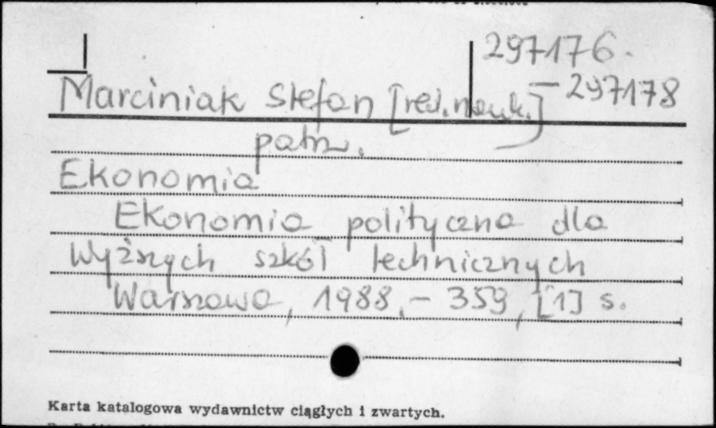 297176.
— 297178
Marciniak Stefan [red. nauk.]
patrz.
Ekonomia
Ekonomia polityczna dla
Wyższych szkół technicznych
Warszawa, 1988. – 359, [1] s.
Karta katalogowa wydawnictw ciągłych i zwartych.